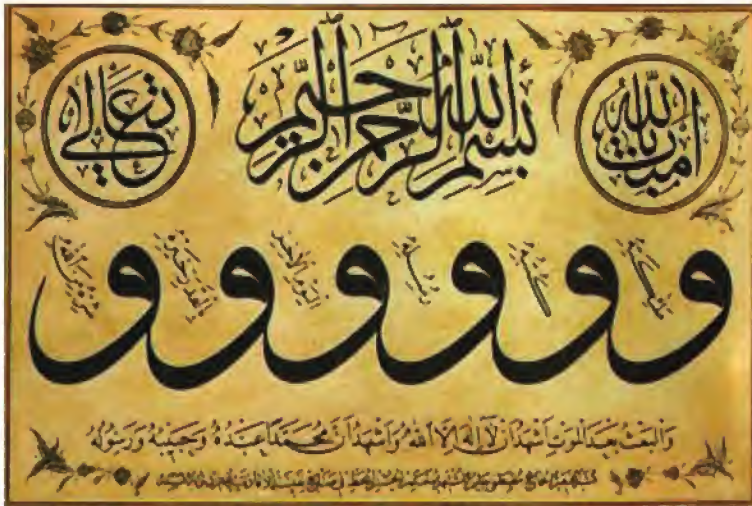 بسم الله الرحمن الرحيم
آمنت بالله
تعالى
و ملئكته و كتبه و رسله و اليوم الآخر و بالقدر خيره و شره من الله
والبعث بعد الموت اشهد ان لا اله الا الله واشهد ان محمدا عبده وحبيبه ورسوله